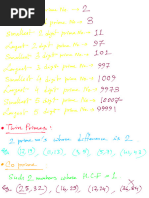 prime no → 2
3
Smallest 2 digit prime no → 11
Largest 2 digit prime no → 97
Smallest 3 digit prime no → 101
Largest 3 digit prime no → 997
Smallest 4 digit prime no → 1009
Largest 4 digit prime no → 9973
Smallest 5 digit prime no → 10007
Largest 5 digit prime no → 99991
Twin Primes:
2 prime no's whose difference is 2
Eg.
Co prime
2 numbers whose H.C.F = 1
Eg. (25,32),